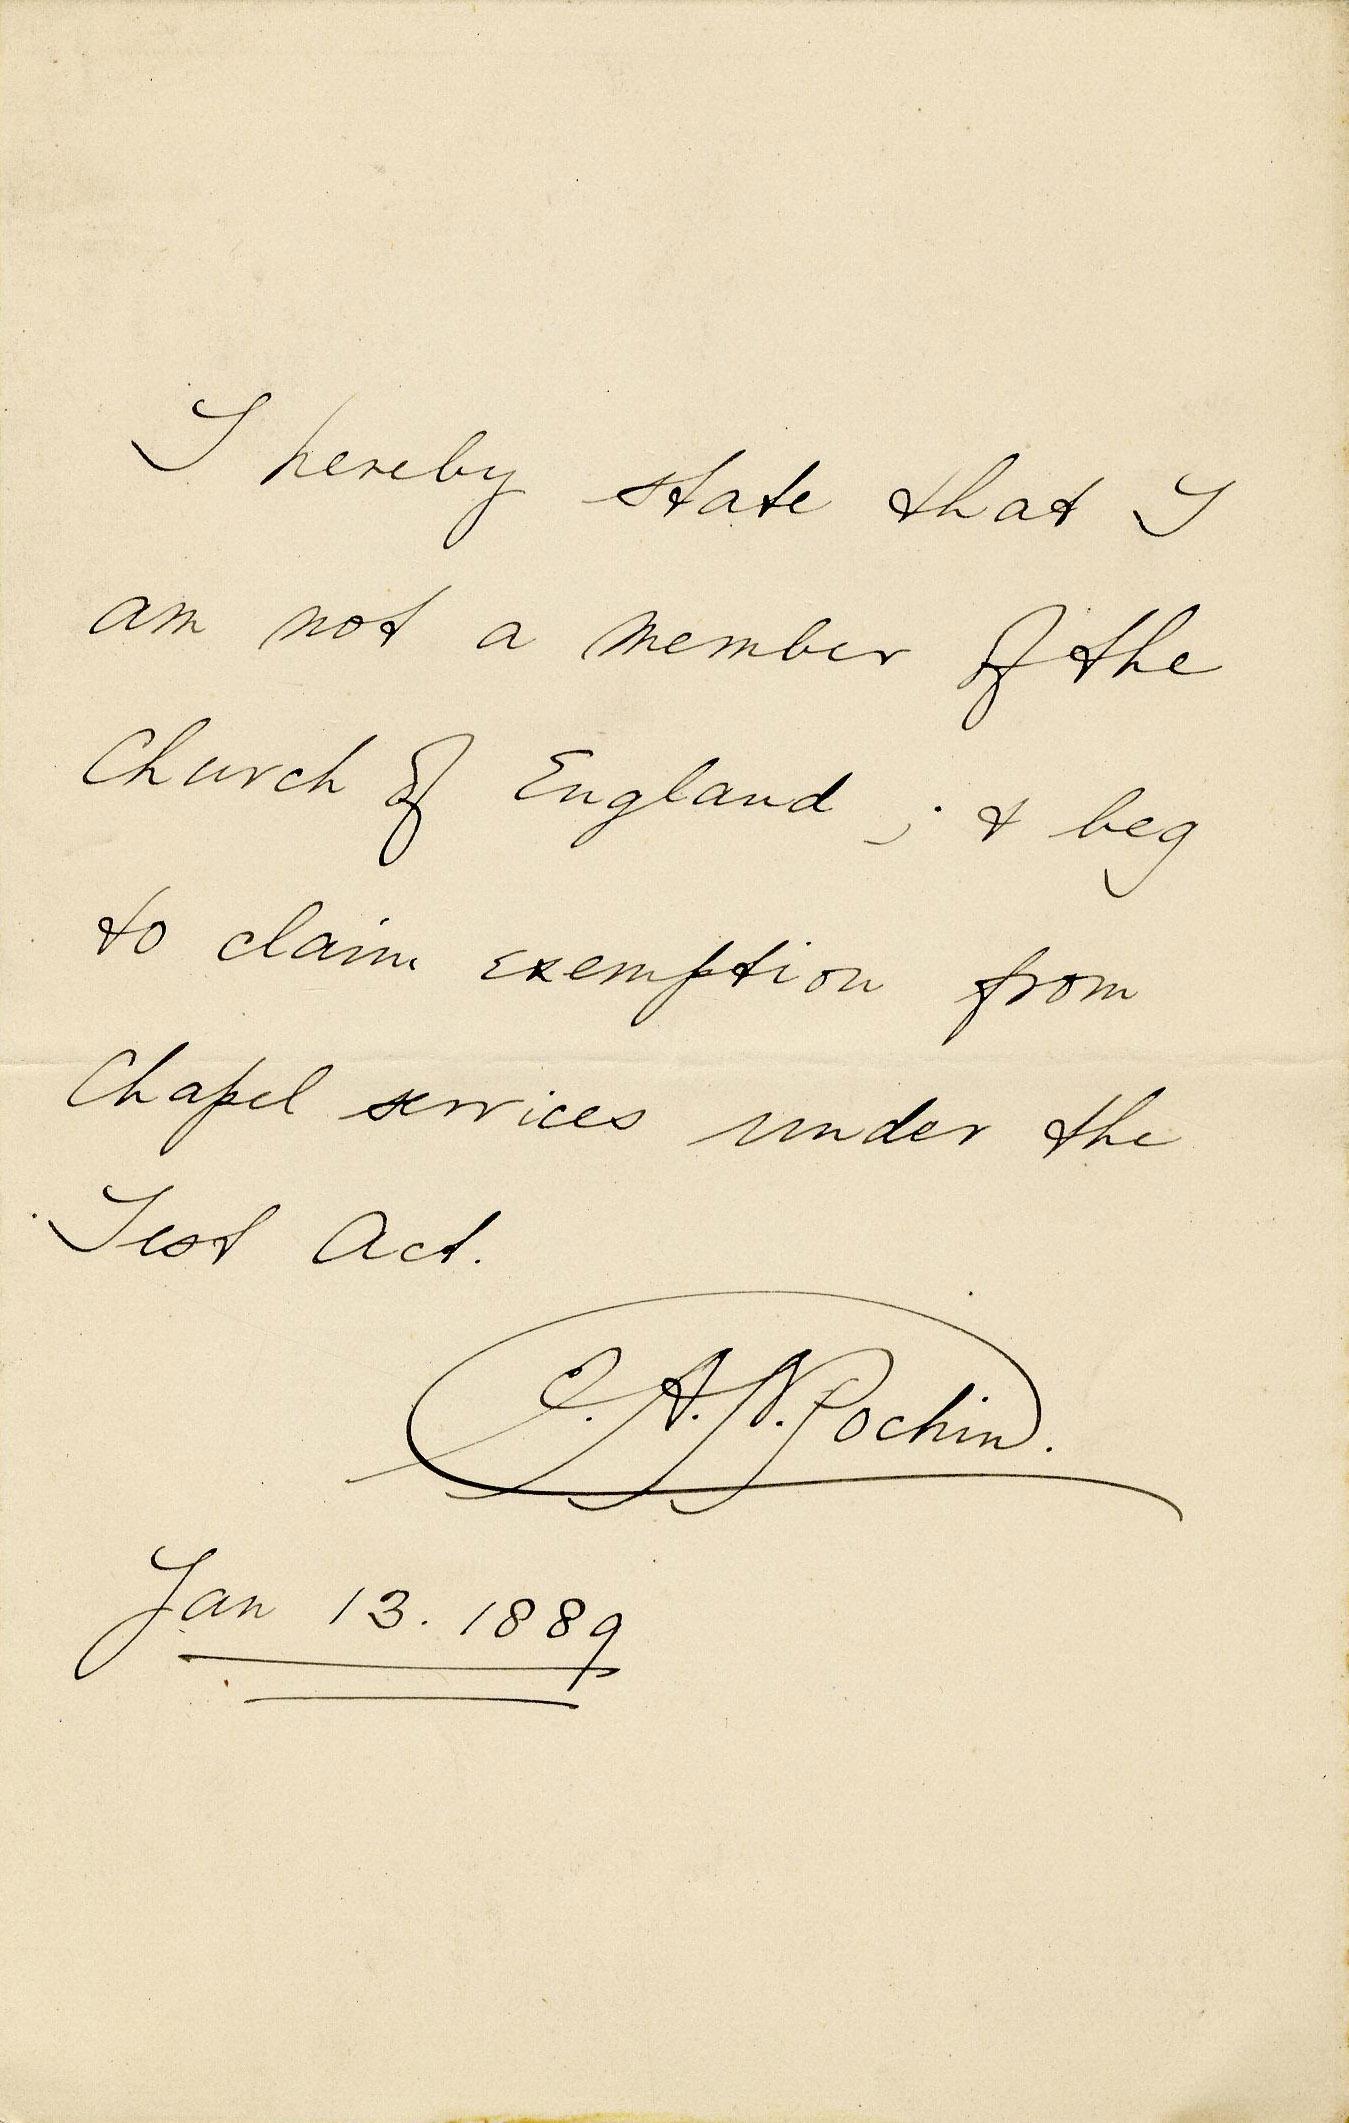 I hereby state that I
am not a member of the
Church of England ; & beg
to claim exemption from
Chapel services under the
Test Act.
E. A. N. Pochin.
Jan 13. 1889